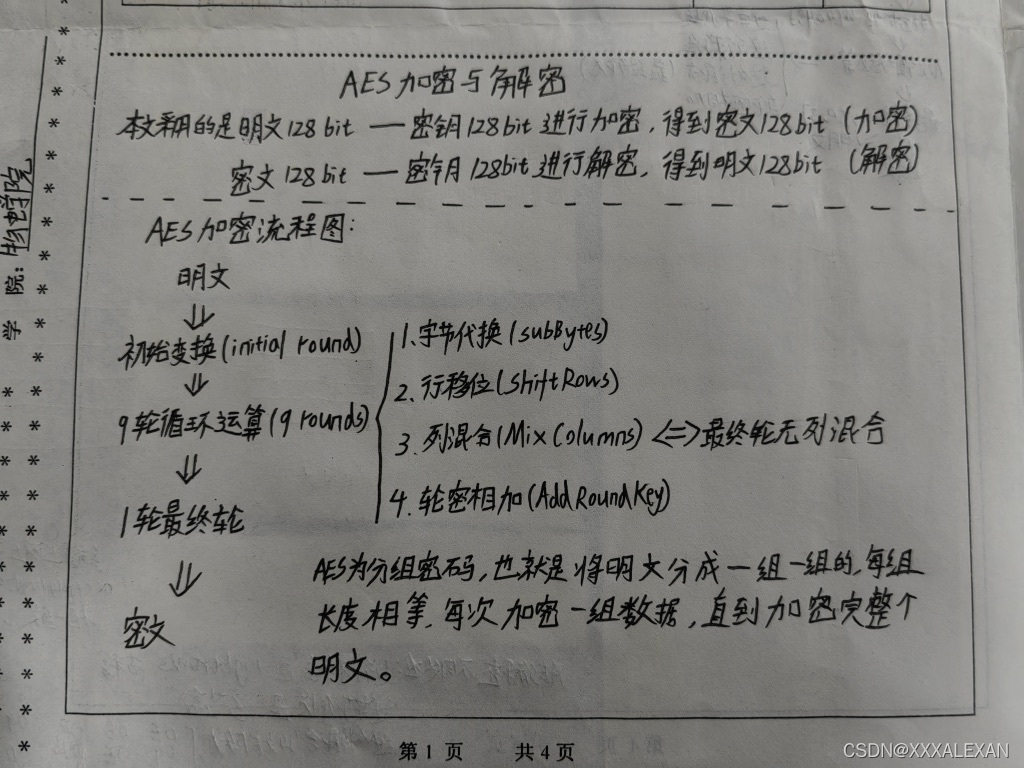 AES加密与解密
本文采用的是明文128bit — 密钥128bit进行加密,得到密文128bit (加密)
密文128bit — 密钥128bit进行解密,得到明文128bit (解密)
AES加密流程图:
明文
⇓
初始变换(initial round)
⇓
9轮循环运算(9 rounds)
⇓
1轮最终轮
⇓
密文
1.字节代换(subBytes)
2.行移位(ShiftRows)
3.列混合(MixColumns) <=>最终轮无列混合
4.轮密相加(AddRoundKey)
AES为分组密码,也就是将明文分成一组一组的,每组
长度相等,每次加密一组数据,直到加密完整个
明文。
学院:物电学院
第 1 页 共 4 页
CSDN@XXXALEXAN